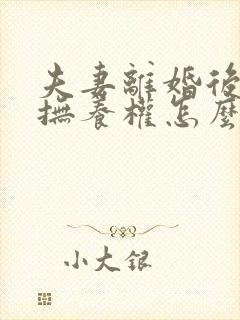 夫妻離婚後
撫養權怎麼
小大銀